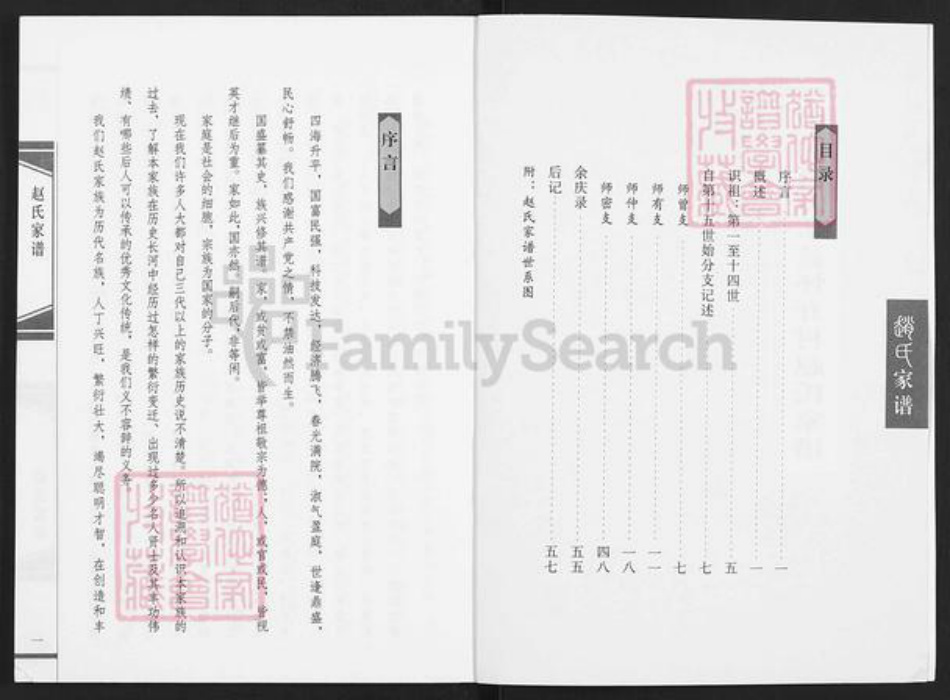 赵氏家谱
目录
序言 一
概述 一
识祖：第一至十四世 五
自第十五世始分支记述 七
师曾支 七
师有支 一一
师仲支 一八
师密支 四八
余庆录 五五
后记 五七
附：赵氏家谱世系图
序言
四海升平，国富民强，科技发达，经济腾飞，春光满院，淑气盈庭，世逢鼎盛，
民心舒畅。我们感谢共产党之情，不禁油然而生。
国盛纂其史，族兴修其谱。家，或贫或富，皆举尊祖敬宗为德；人，或官或民，皆视
英才继后为重。家如此，国亦然，嗣后代，非等闲。
家庭是社会的细胞，宗族为国家的分子。
现在我们许多人大都对自己三代以上的家族历史说不清楚。所以追溯和认识本家族的
过去，了解本家族在历史长河中经历过怎样的繁衍变迁、出现过多少名人贤士及其丰功伟
绩、有哪些后人可以传承的优秀文化传统，是我们义不容辞的义务。
我们赵氏家族为历代名族，人丁兴旺，繁衍壮大，竭尽聪明才智，在创造和丰
赵氏家谱
一
FamilySearch